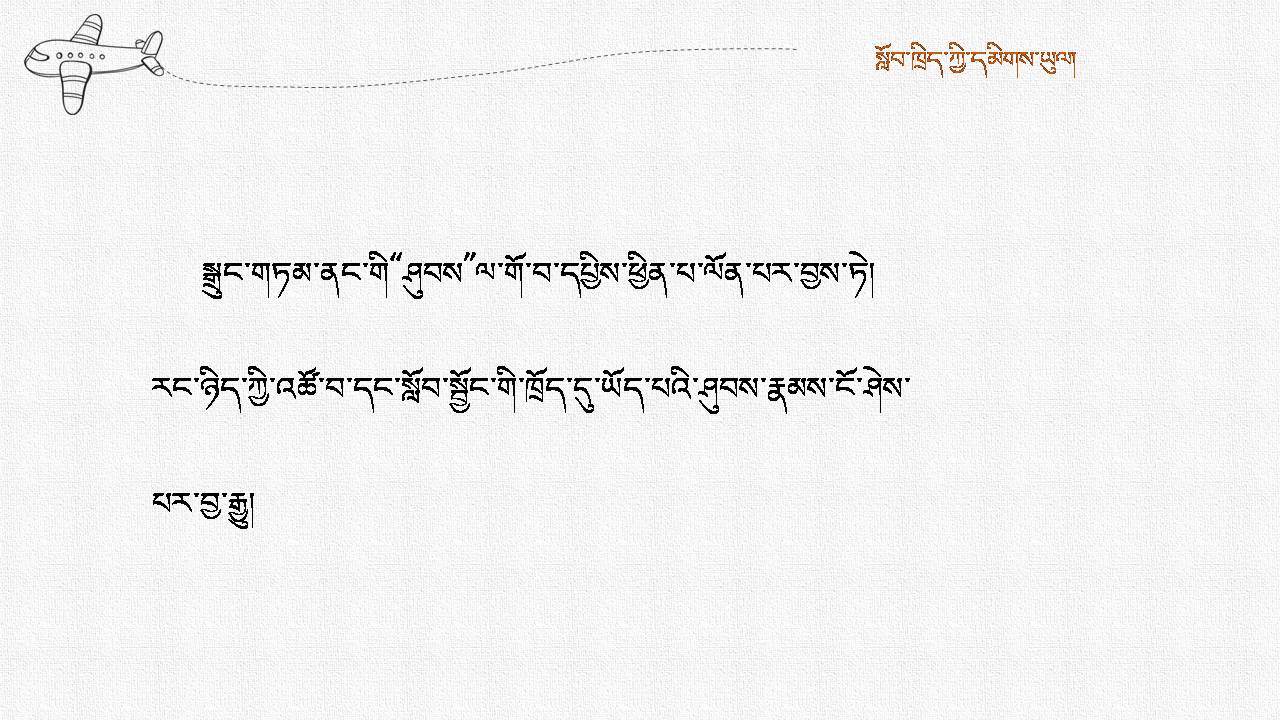 སློབ་ཁྲིད་ཀྱི་དམིགས་ཡུལ།
སྒྲུང་གཏམ་ནང་གི“ཤུབས”ལ་གོ་བ་དཔྱིས་ཕྱིན་པ་ལོན་པར་བྱས་ཏེ།
རང་ཉིད་ཀྱི་འཚོ་བ་དང་སློབ་སྦྱོང་གི་ཁྲོད་དུ་ཡོད་པའི་ཤུབས་རྣམས་ངོ་ཤེས་
པར་བྱ་རྒྱུ།